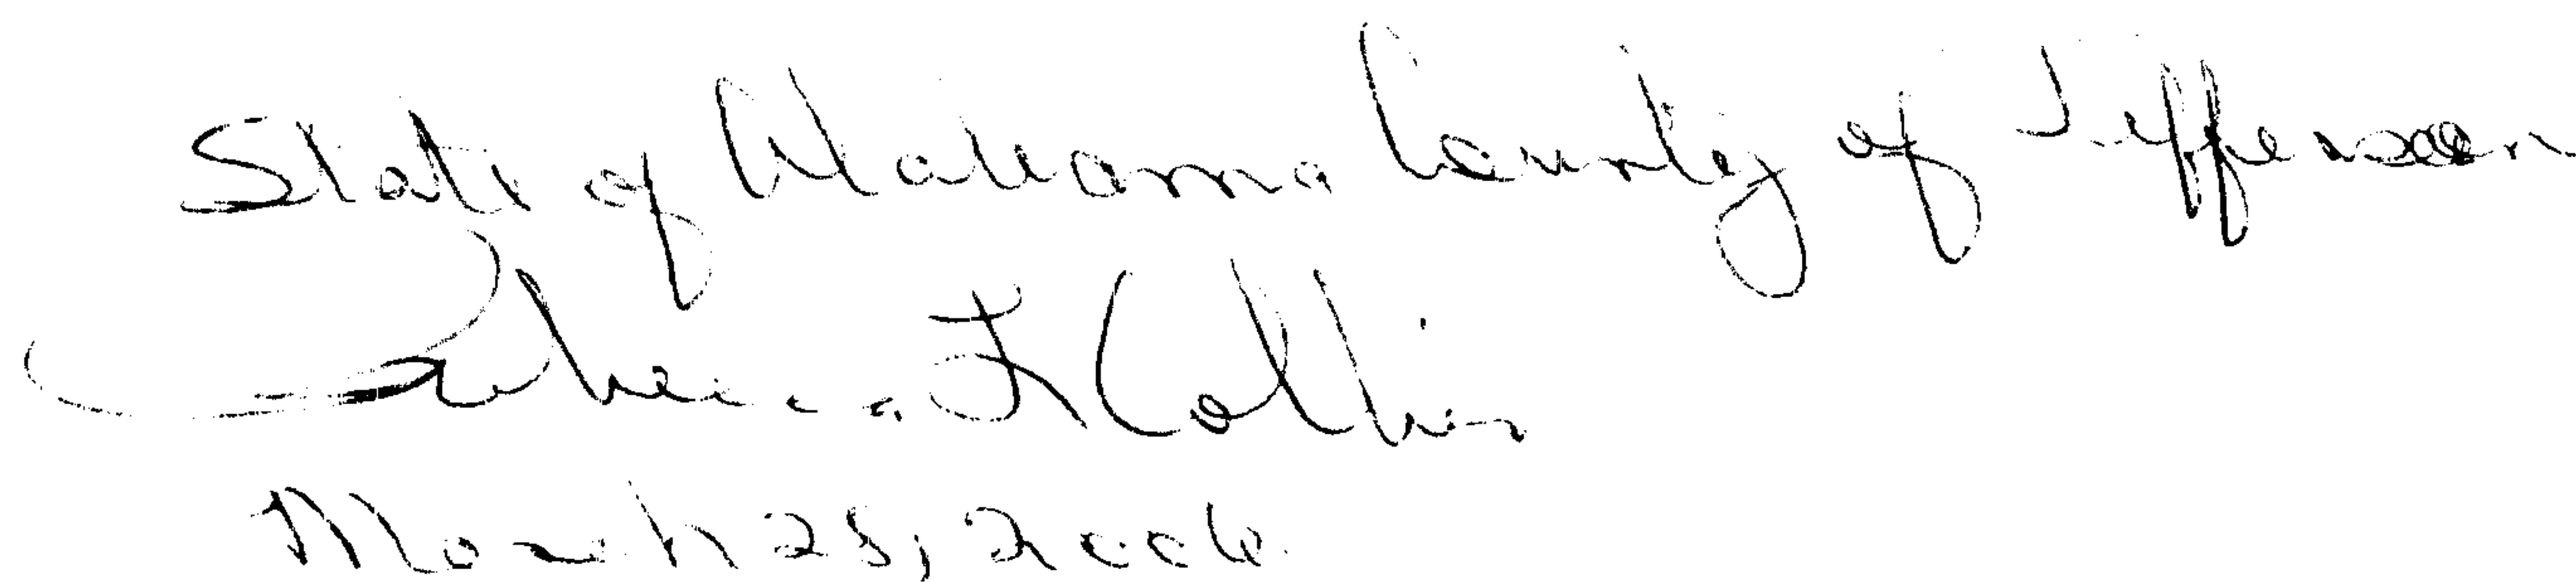 State of Alabama County of Jefferson
F Collins
March 25, 2006